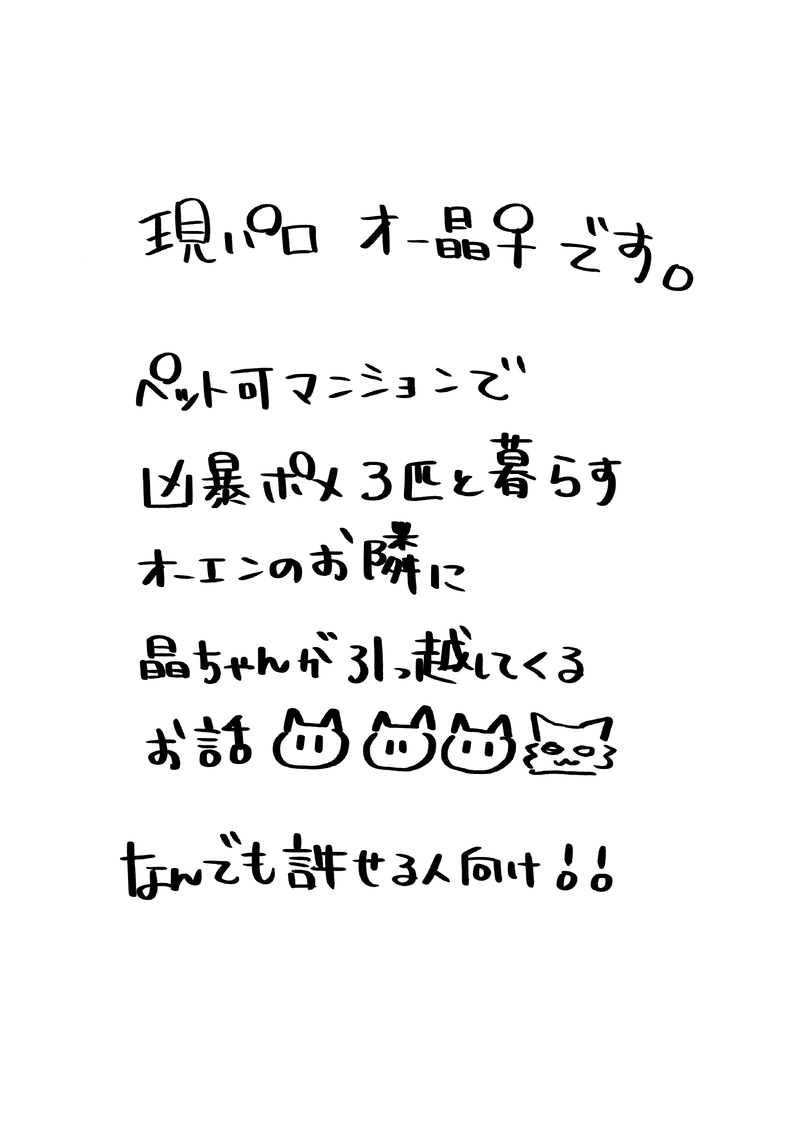 現パロ オー晶♀です。
ペット可マンションで
凶暴ポメ3匹と暮らす
オーエンのお隣に
晶ちゃんが引っ越してくる
お話
なんでも許せる人向け!!